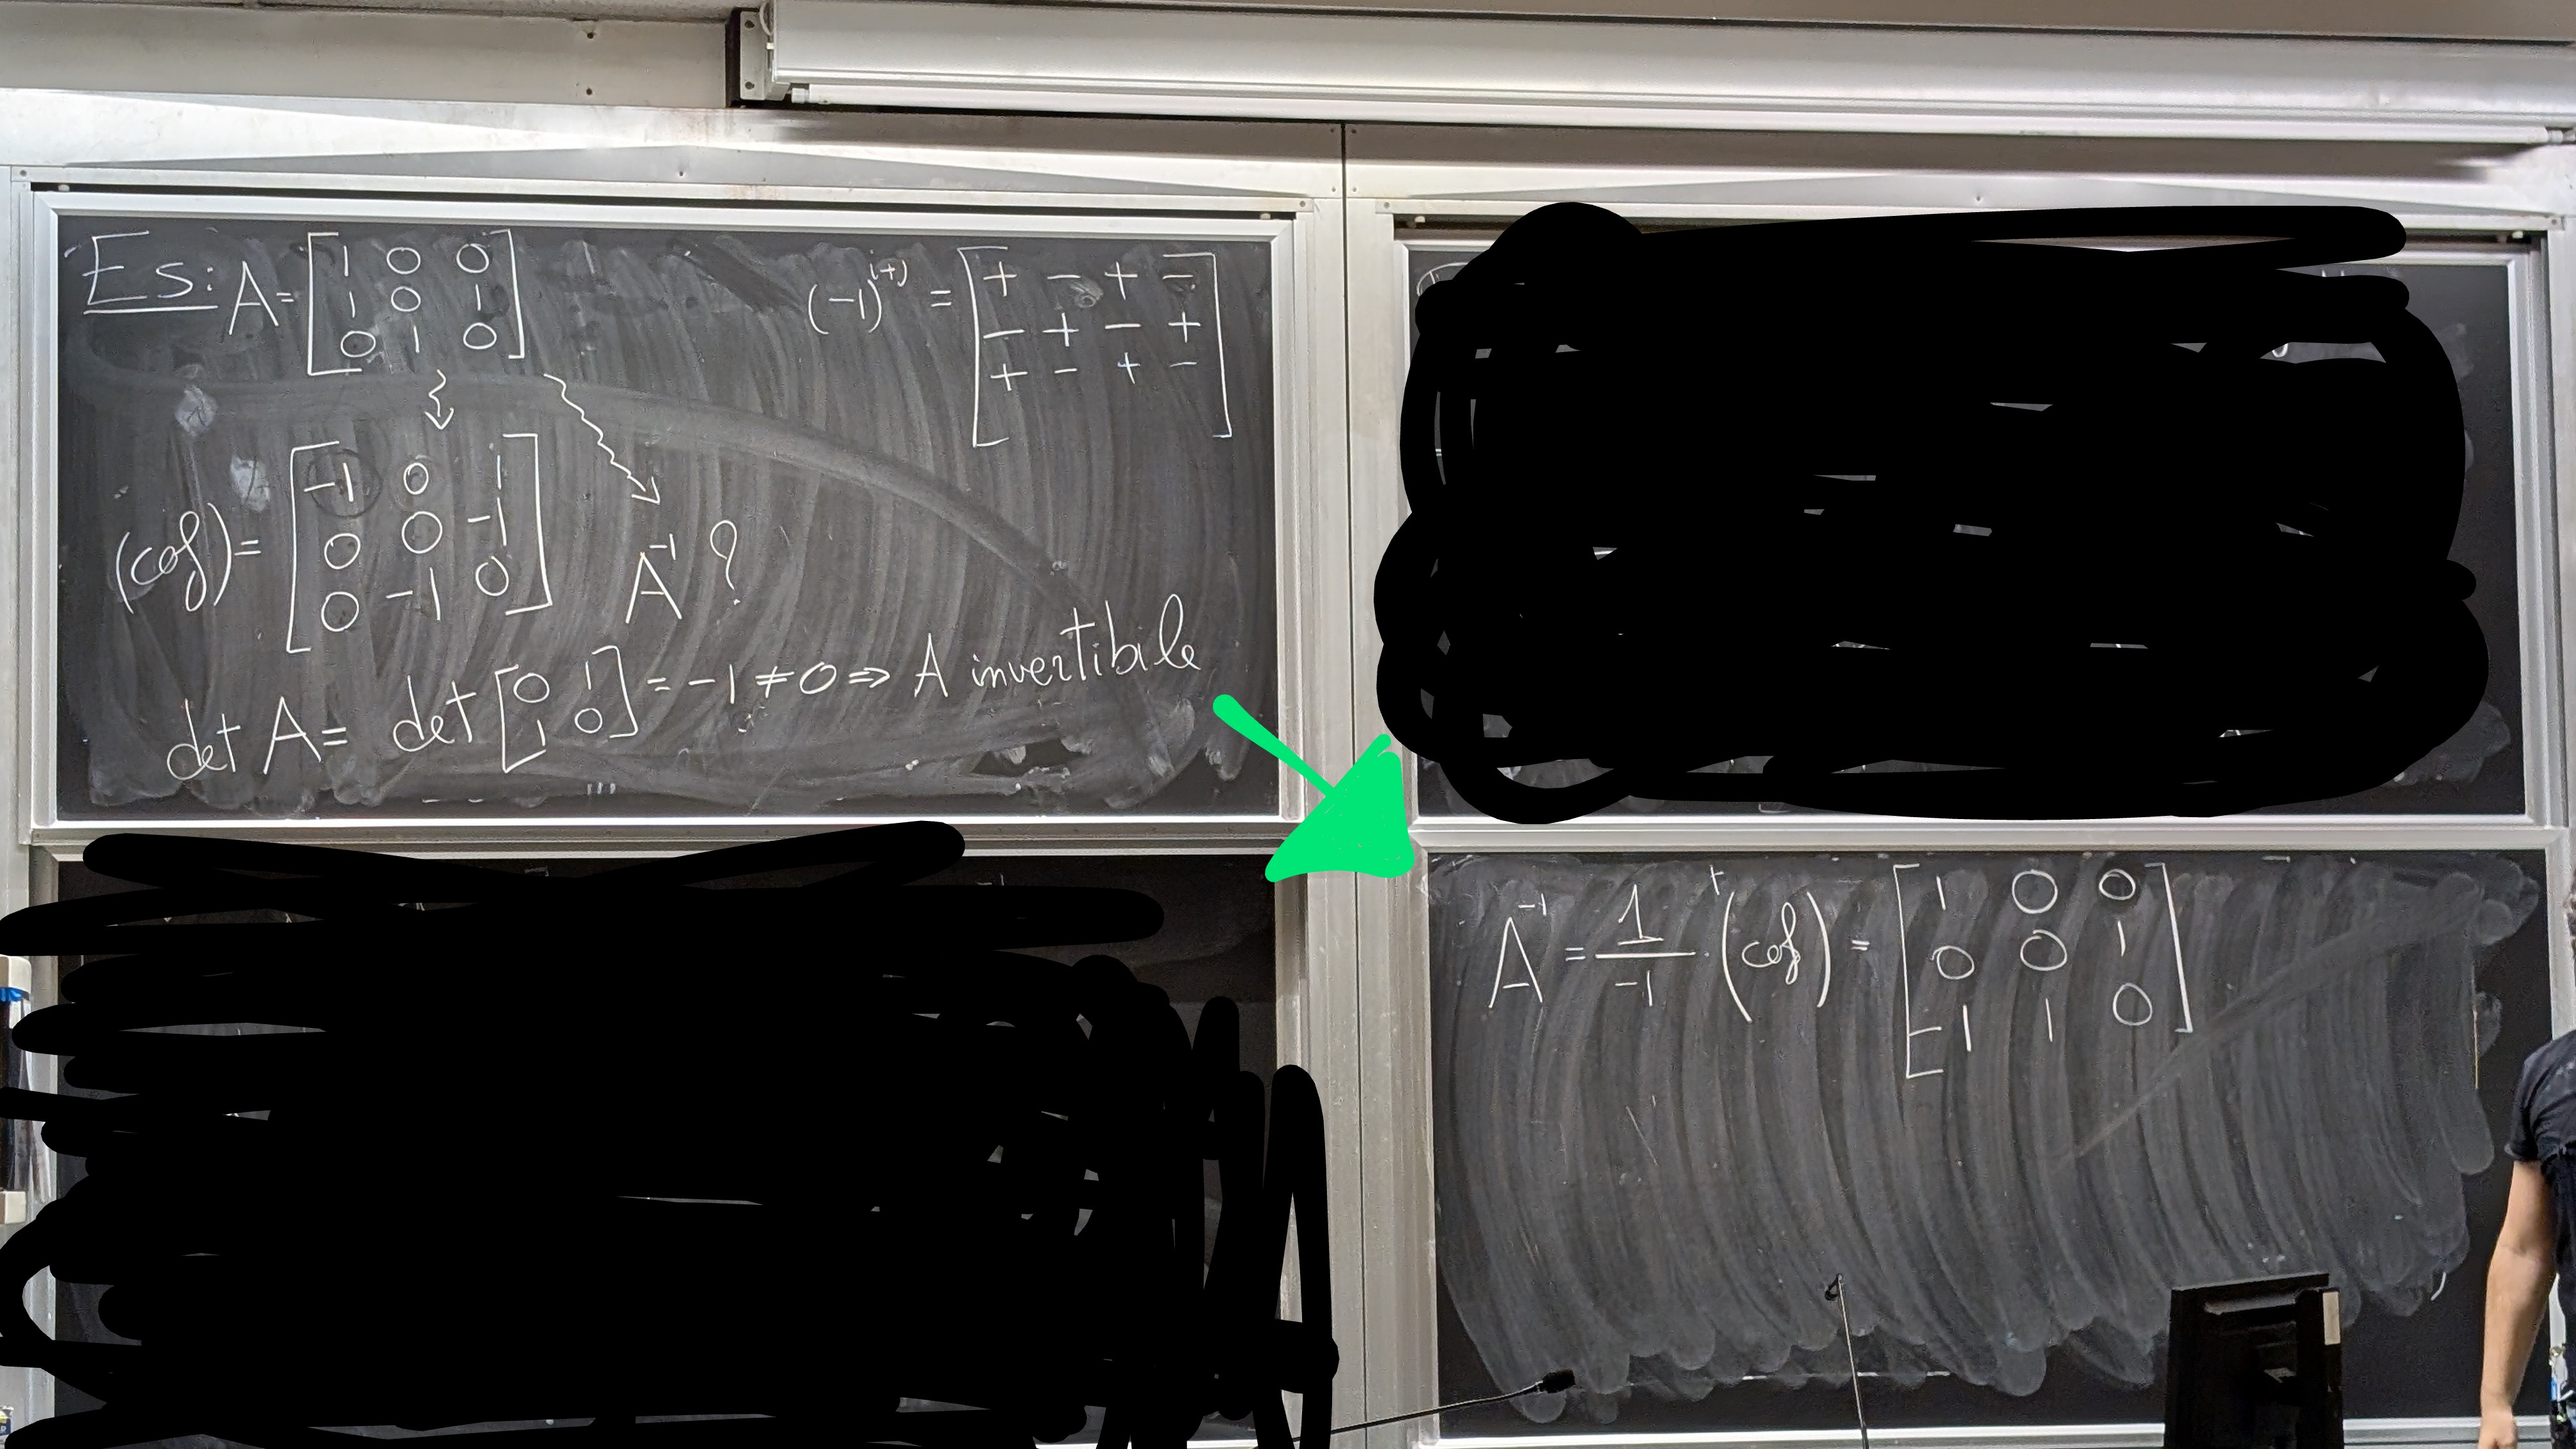 Es: A = [1 0 0; 1 0 1; 0 1 0]
(-1)^{i+j} = [+ - + -; - + - +; + - + -]
(cof) = [-1 0 1; 0 0 -1; 0 -1 0]
A^{-1} ?
det A = det [0 1; 1 0] = -1 ≠ 0 ⇒ A invertibile
A^{-1} = 1/-1 · ^t(cof) = [1 0 0; 0 0 1; -1 1 0]